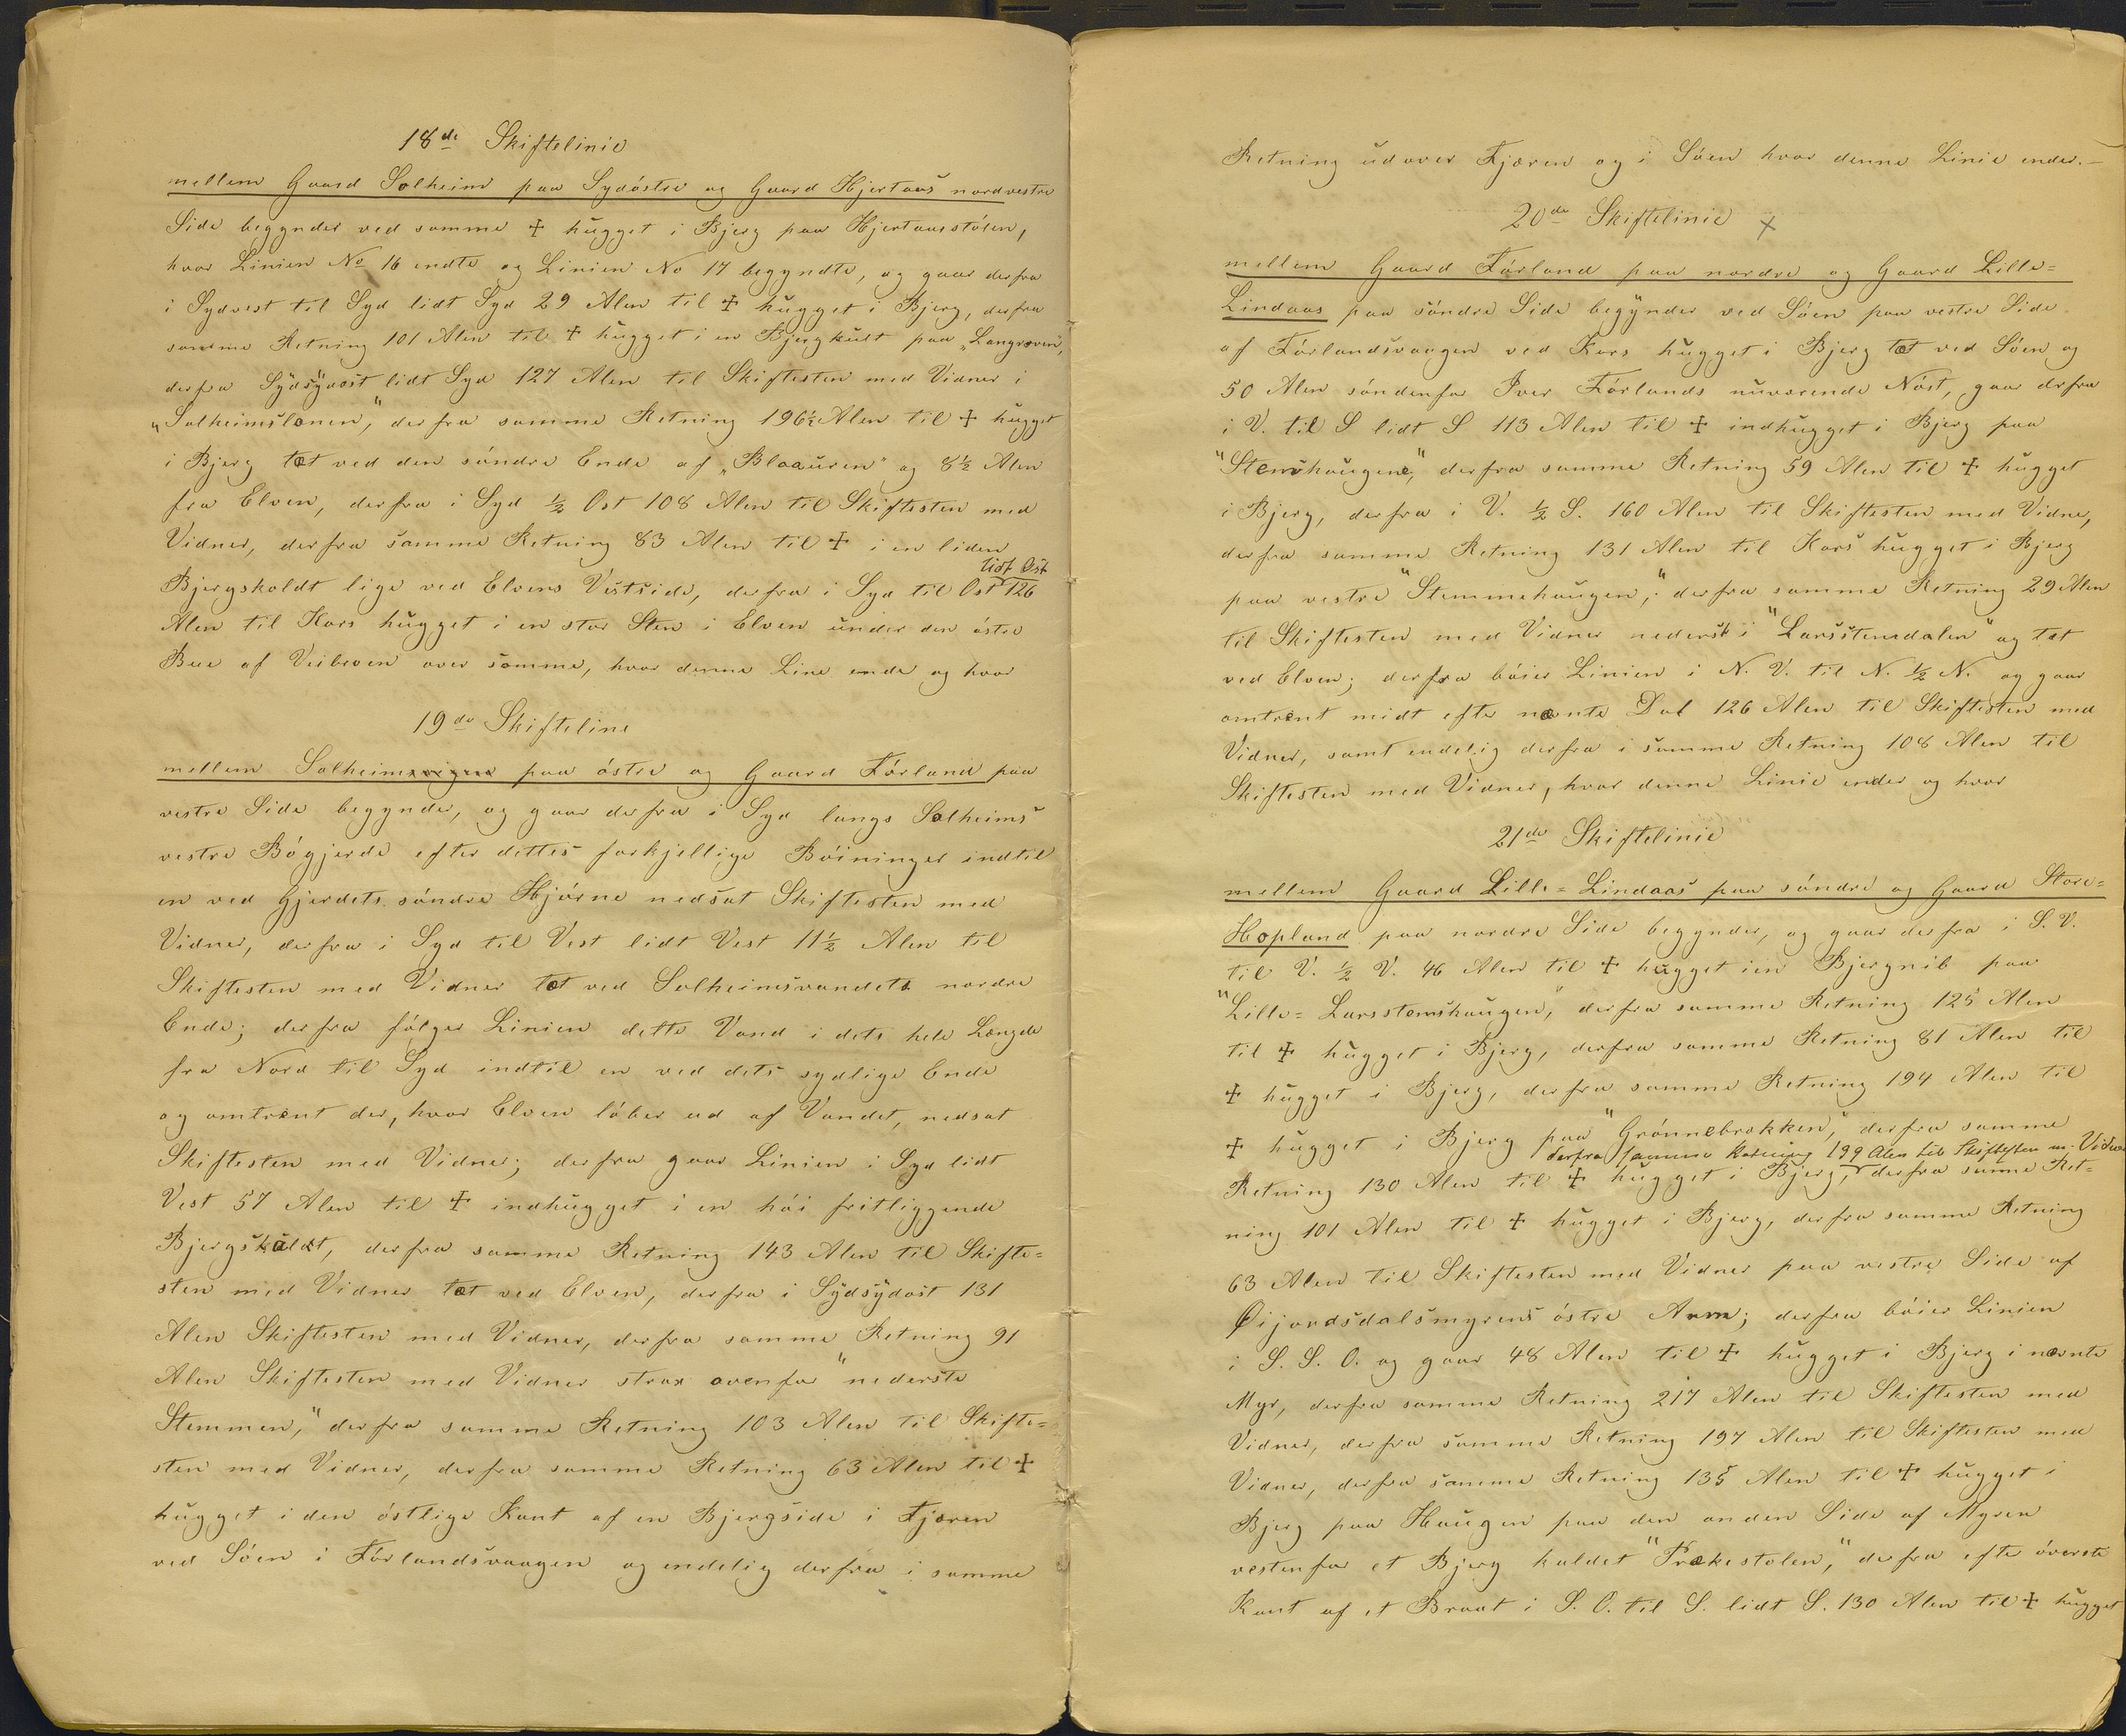 18de Skiftelinie
mellem Gaard Solheim paa Sydöstre og Gaard Hjertaas nordvestre
Side begynder ved samme ☩ hugget i Bjerg paa Hjertaasstölen,
hvor Linien No 16 endte og Linien No 17 begyndte, og gaar derfra
i Sydvest til Syd lidt Syd 29 Alen til ☩ hugget i Bjerg, derfra
samme Retning 101 Alen til ☩ hugget i en Bjergkult paa „Langrøven",
derfra Sydsydost lidt Syd 127 Alen til Skiftesten med Vidner i
„Solheimslonen", derfra samme Retning 196½ Alen til ☩ hugget
i Bjerg tæt ved den söndre Ende af „Blaauren" og 8½ Alen
fra Elven, derfra i Syd ½ Ost 108 Alen til Skiftesten med
Vidner, derfra samme Retning 83 Alen til ☩ i en liden
Bjergskoldt lige ved Elvens Vestside, derfra i Syd til Ost lidt Ost 126
Alen til Kors hugget i en stor Sten i Elven under den östre
Bue af Veibroen over samme, hvor denne Line ende og hvor
19de Skifteline
mellem Solheimsvigen paa östre og Gaard Förland paa
vestre Side begynder, og gaar derfra i Syd langs Solheims
vestre Bögjerde efter dettes forkjellige Böininger indtil
en ved Gjerdets söndre Hjörne nedsat Skiftesten med
Vidner, derfra i Syd til Vest lidt Vest 11½ Alen til
Skiftesten med Vidner tæt ved Solheimsvandets nordre
Ende; derfra fölger Linien dette Vand i dets hele Længde
fra Nord til Syd indtil en ved dets sydlige Ende
og omtrent der, hvor Elven löber ud af Vandet, nedsat
Skiftesten med Vidner; derfra gaar Linien i Syd lidt
Vest 57 Alen til ☩ indhugget i en höi fritliggende
Bjergskoldt, derfra samme Retning 143 Alen til Skifte=
sten med Vidner tæt ved Elven, derfra i Sydsydost 131
Alen Skiftesten med Vidner, derfra samme Retning 91
Alen Skiftesten med Vidner strax ovenfor "nederste
Stemmen," derfra samme Retning 103 Alen til Skifte=
sten med Vidner, derfra samme Retning 63 Alen til ☩
hugget i den östlige Kant af en Bjergside i Fjæren
ved Söen i Förlandsvaagen og endelig derfra i samme
Retning udover Fjæren og i Söen hvor denne Linie ender.—
20de Skiftelinie ×
mellem Gaard Förland paa nordre og Gaard Lille=
Lindaas paa söndre Side begynder ved Söen paa vestre Side
af Förlandsvaagen ved Kors hugget i Bjerg tæt ved Söen og
50 Alen söndenfor Iver Förlands nuværende Nöst, gaar derfra
i V. til S lidt S 113 Alen til ☩ indhugget i Bjerg paa
"Stemshaugene," derfra samme Retning 59 Alen til ☩ hugget
i Bjerg, derfra i V. ½ S. 160 Alen til Skiftesten med Vidner,
derfra samme Retning 131 Alen til Kors hugget i Bjerg
paa vestre "Stemmehaugen," derfra samme Retning 29 Alen
til Skiftesten med Vidner nederst i "Larsstensdalen" og tæt
ved Elven; derfra böier Linien i N. V. til N. ½ N. og gaar
omtrent midt efter nævnte Dal 126 Alen til Skiftesten med
Vidner, samt endelig derfra i samme Retning 108 Alen til
Skiftesten med Vidner, hvor denne Linie ender og hvor
21de Skiftelinie
mellem Gaard Lille=Lindaas paa söndre og Gaard Store=
Hopland paa nordre Side begynder, og gaar derfra i S. V.
til V. ½ V. 46 Alen til ☩ hugget i en Bjergnib paa
"Lille=Larsstenshaugen," derfra samme Retning 125 Alen
til ☩ hugget i Bjerg, derfra samme Retning 81 Alen til
☩ hugget i Bjerg, derfra samme Retning 194 Alen til
☩ hugget i Bjerg paa "Grönnebrækken," derfra samme
derfra samme Retning 199 Alen til Skiftesten m. Vidner
Retning 130 Alen til ☩ hugget i Bjerg, derfra samme Ret=
ning 101 Alen til ☩ hugget i Bjerg, derfra samme Retning
63 Alen til Skiftesten med Vidner paa vestre Side af
Øijordsdalsmyrens östre Arm; derfra böier Linien
i S. S. O. og gaar 48 Alen til ☩ hugget i Bjerg i nævnte
Myr, derfra samme Retning 217 Alen til Skiftesten med
Vidner, derfra samme Retning 197 Alen til Skiftesten med
Vidner, derfra samme Retning 135 Alen til ☩ hugget i
Bjerg paa Haugen paa den anden Side af Myren
vestenfor et Bjerg kaldet "Prækestolen," derfra efter överste
Kant af et Braat i S. O. til S. lidt S. 130 Alen til ☩ hugget